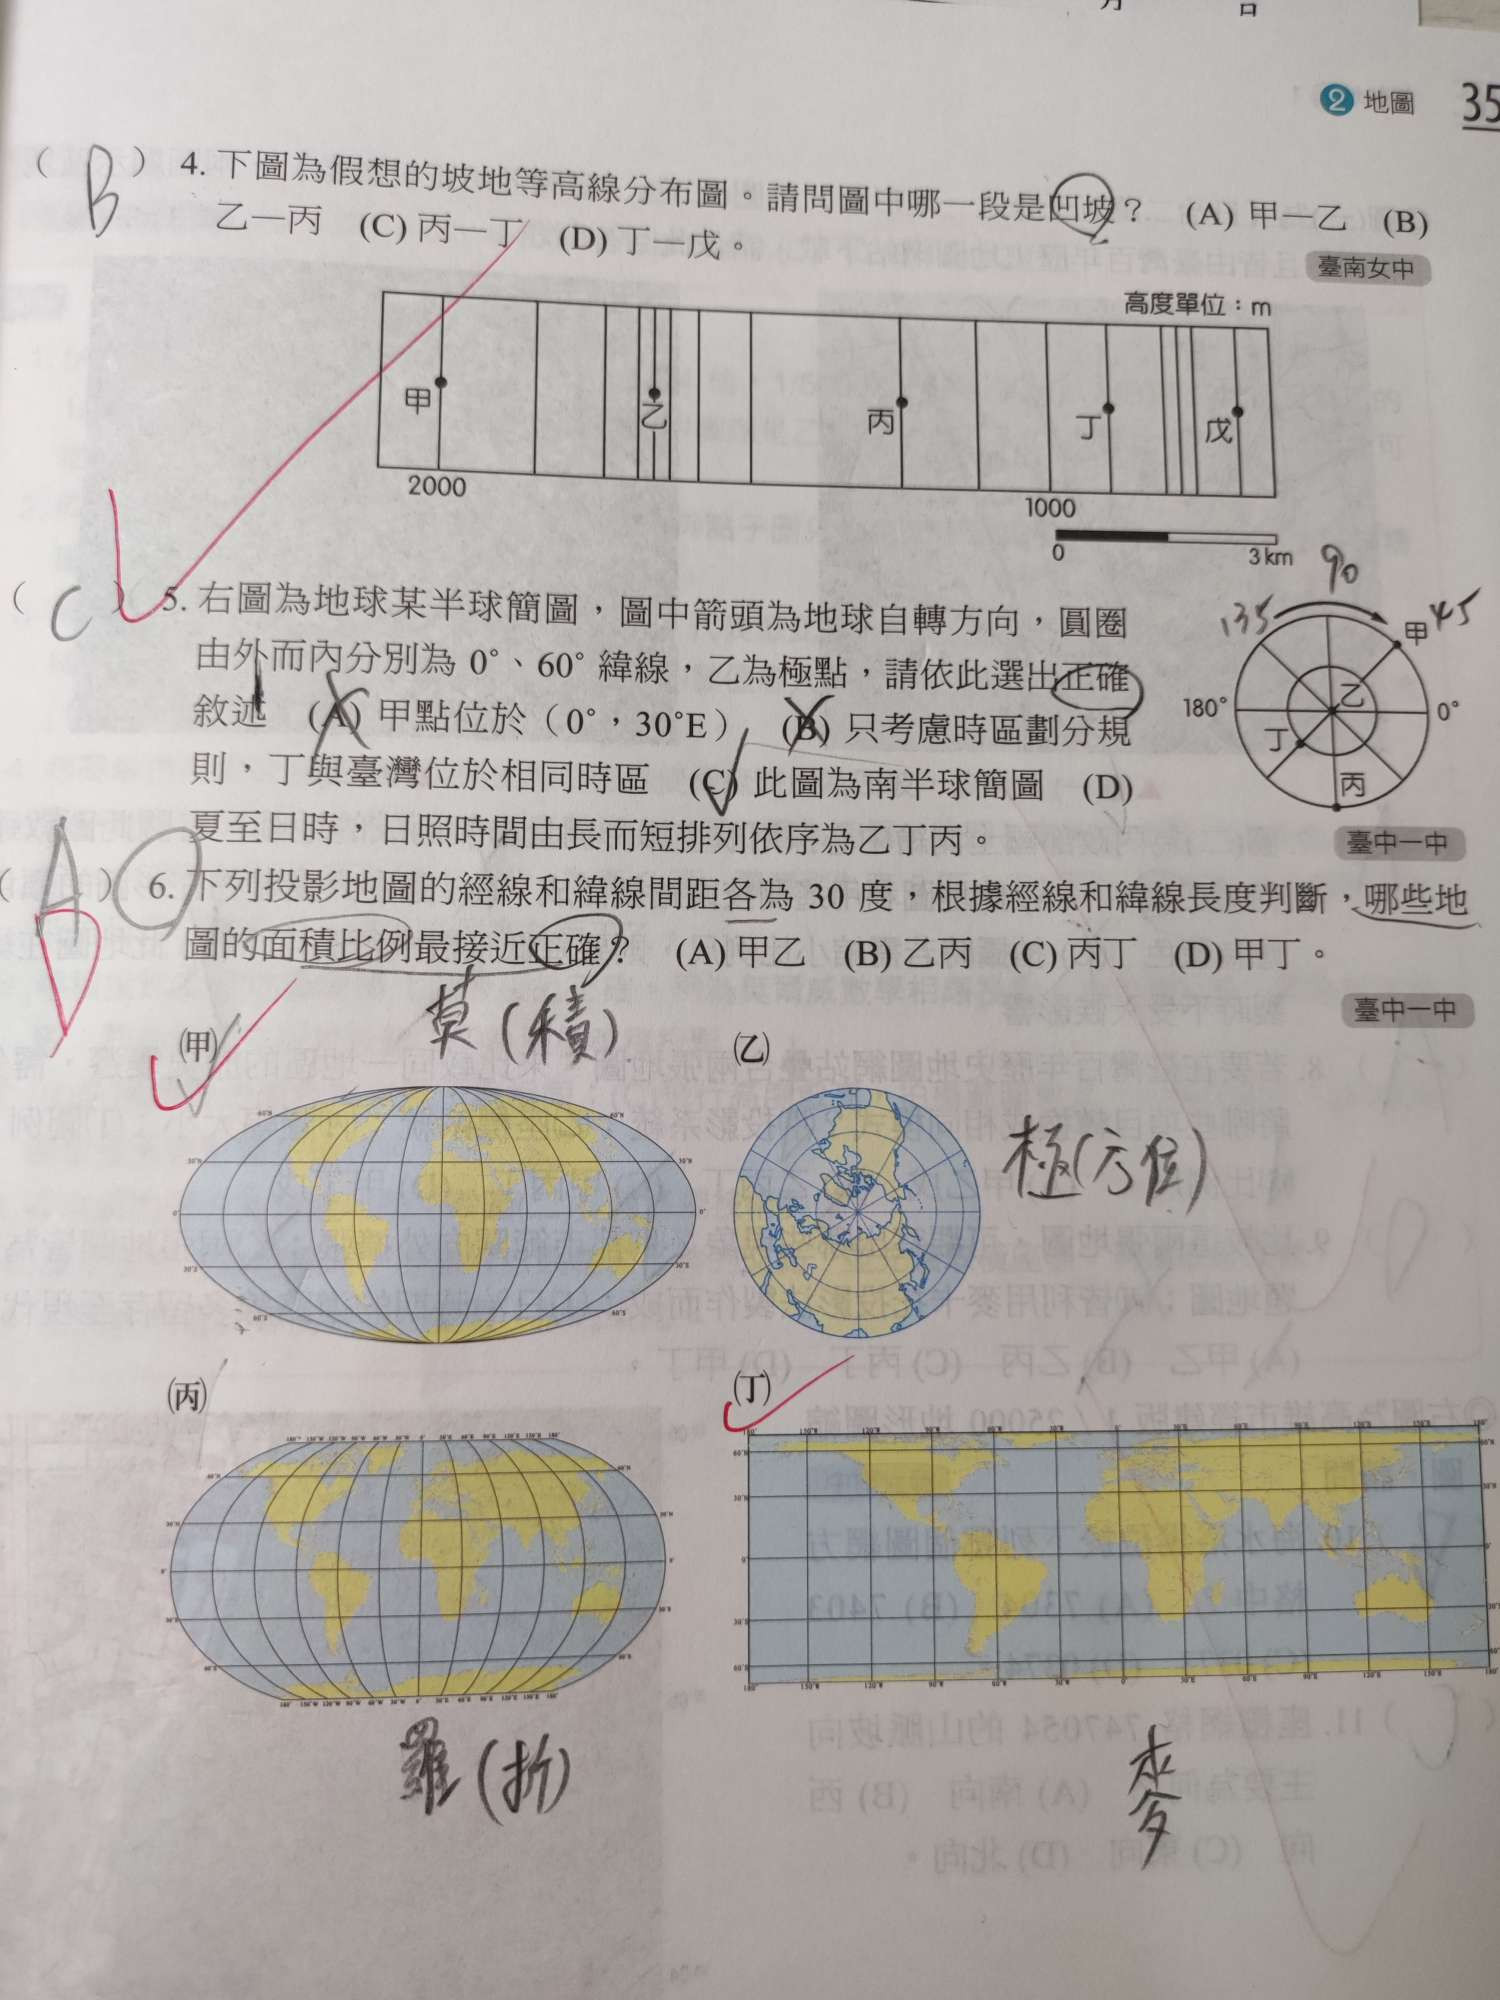 2 地圖 35
( B ) 4. 下圖為假想的坡地等高線分布圖。請問圖中哪一段是凹坡？ (A) 甲—乙 (B)
乙—丙 (C) 丙—丁 (D) 丁—戊。
臺南女中
高度單位：m
甲 乙 丙 丁 戊
2000 1000
0 3km
( C ) 5. 右圖為地球某半球簡圖，圖中箭頭為地球自轉方向，圓圈
由外而內分別為 0°、60° 緯線，乙為極點，請依此選出正確
敘述 (A) 甲點位於（0°，30°E） (B) 只考慮時區劃分規
則，丁與臺灣位於相同時區 (C) 此圖為南半球簡圖 (D)
夏至日時，日照時間由長而短排列依序為乙丁丙。
90
135 甲 45
180° 乙 0°
丁
丙
臺中一中
( A ) 6. 下列投影地圖的經線和緯線間距各為 30 度，根據經線和緯線長度判斷，哪些地
D 圖的面積比例最接近正確？ (A) 甲乙 (B) 乙丙 (C) 丙丁 (D) 甲丁。
臺中一中
莫(積)
(甲) (乙)
極(方位)
(丙) (丁)
羅(折)
麥